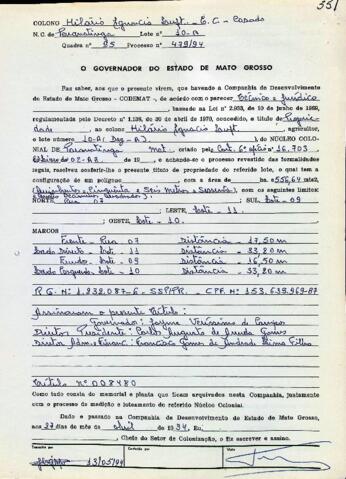 551
COLONO Hilário Ignacio - E.C. - Casado
N.C. de Paranatinga Lote nº 10-A
Quadra nº 95 Processo nº 478/94
O GOVERNADOR DO ESTADO DE MATO GROSSO
Faz saber, aos que o presente virem, que havendo a Companhia de Desenvolvimento
do Estado de Mato Grosso - CODEMAT -, de acordo com o parecer Técnico e Jurídico
, baseada na Lei nº 2.933, de 10 de junho de 1969,
regulamentada pelo Decreto nº 1.138, de 30 de abril de 1970, conceder o título de
dade, ao colono Hilário Ignacio, agricultor,
o lote número 10-A DO NÚCLEO COLO-
NIAL DE Paranatinga Mat. criado pelo Cart. 6º ofício nº 16.703
de 19 , e achando-se o processo revestido das formalidades
legais, resolveu conferir-lhe o presente título de propriedade do referido lote, o qual tem a
configuração de um polígono com a área de ha. 556,64 mts2,
(Quinhentos e Cinquenta e Seis Metros e Sessenta
), com os seguintes limites:
NORTE, Rua 07 ; SUL, Lote - 09
; LESTE, Lote - 11.
; OESTE, Lote - 10.
MARCOS
Frente - Rua 07 Distância - 17,50 m
Lado Direito - Lote 11 Distância - 33,80 m
Fundo - Lote 09 Distância - 16,50 m
Lado Esquerdo - Lote - 10 Distância - 33,80 m
R.G. Nº 1.838.087-6 - SSP/PR. - CPF. Nº 153.639.969-87
Assinaram o presente título:
Governador: Jayme Veríssimo de Campos
Diretor Presidente: Carlos Augusto de Arruda Gomes
Diretor Adm. e Financ.: Francisco Gomes de Andrade Lima Filho
Título Nº 008480
Como tudo consta do memorial e planta que ficam arquivados nesta Companhia, junta-
mente com o processo de medição e loteamento do referido Núcleo Colonial.
Dado e passado na Companhia de Desenvolvimento do Estado de Mato Grosso,
aos 27 dias do mês de abril de 1994. Eu,
, Chefe do Setor de Colonização, o fiz escrever e assino.
13/05/94
Visto